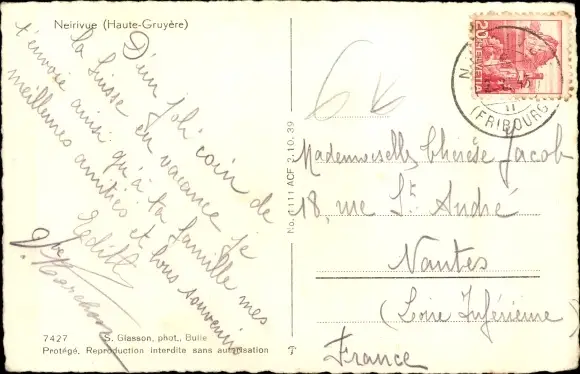 Neirivue (Haute-Gruyère)
D'un joli coin de
la Suisse en vacance je
t'envoie ainsi qu'à ta famille mes
meilleures amitiés et bons souvenirs
Edith
7427 S. Glasson, phot., Bulle
Protégé. Reproduction interdite sans autorisation
No. 1111 ACF 2.10.39
20
HELVETIA
(FRIBOURG)
Mademoiselle Thérèse Jacob
18, rue St. André
Nantes
(Loire Inférieure)
France